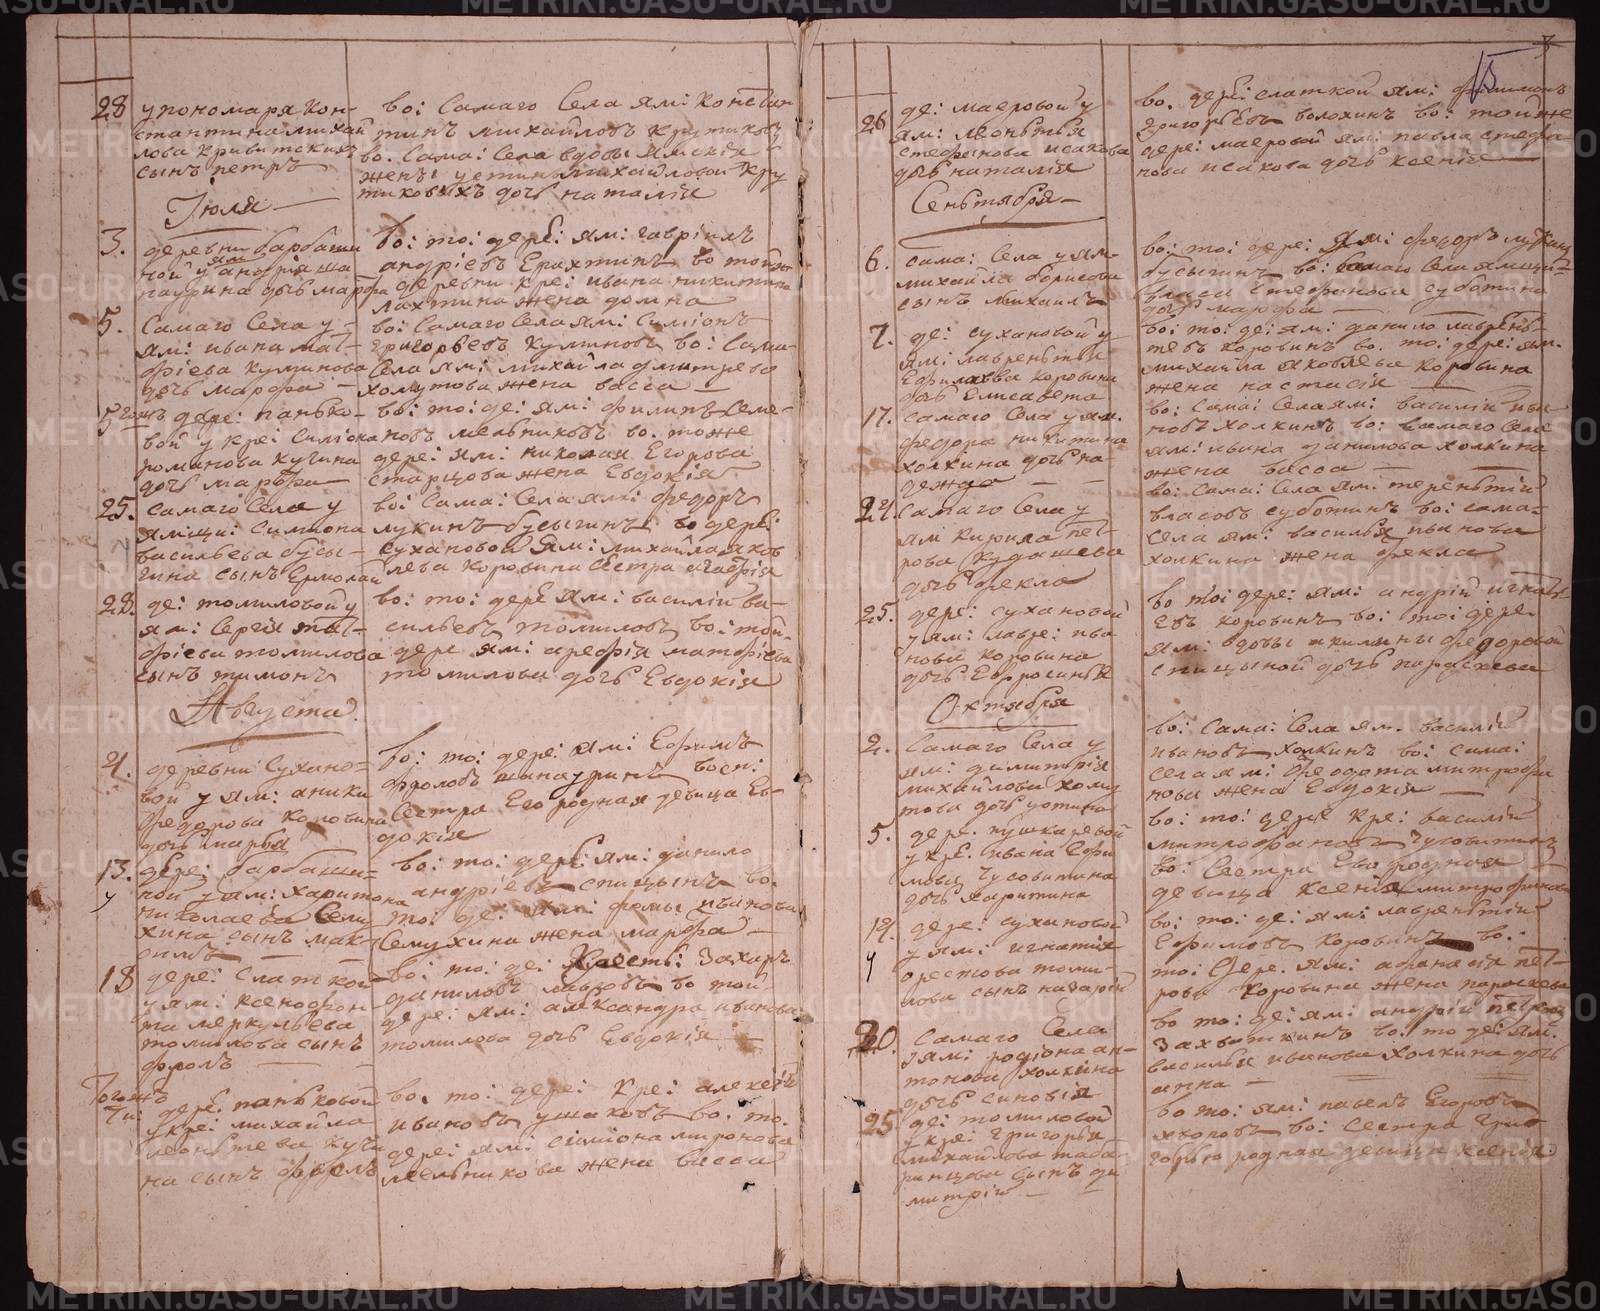 28 упономаря Кон-
стантина михай
лова Кривитских
сынъ петръ
во: Самаго Села ям: Констан
тинъ михайловъ Крутиковъ
во. Сама: Села вдовы ямскія
жены устиньи михайловой Кру
тиковыхъ дочь наталія
Іюля
3. деревни барбаши
ной у ям андрія ша
наурина дочь марфа
во: то: дере: ям: гавріилъ
андріевъ Ерахтинъ во той же
деревни кре: ивана никитина
лахтина жена домна
5. Самаго Села у
ям: ивана мат-
фіева Куминова
дочь марфа
во: Самаго Села ям: Симіонъ
григорьевъ Куминовъ во: Сама-
Села ям: михайла дмитрева
хомутова жена васса
5 дере: панько-
вой у кре: Симіона
романова кучина
дочь марфа
во: то: де: ям: филипъ Семе-
новъ мельниковъ во. тоже
дере: ям: николая Егорова
старцова жена Евдокія
25. Самаго Села у
ямщи: Симиона
васильева бусы-
гина сынъ Ермолай
во: Сама: Села ям: федоръ
лукинъ бусыгинъ во дере:
сухановой ям: михайла яков
лева коровина Сестра агафія
28. де: томиловой у
ям: Сергія мат-
фіева томилова
сынъ тимонъ
во: то: дере ям: василій ва-
сильевъ томиловъ во: той-
дере ям: арефія матфіева
томилова дочь Евдокія
Августа.
4. деревни Сухано-
вой у ям: аники
Федорова коровина
дочь марья
во: то: дере: ям: Ефимъ
фроловъ шанауринъ восп:
Сестра Его родная девица Ев-
докія
13. дере: барбаши-
ной у ям: харитона
николаева Сему
хина сынъ мак-
симъ
во: то: дере: ям: данило
андріевъ спицынъ во.
то: де: ям: фомы иванова
Семухина жена марфа
18 дере: Слаткой
у ям: ксенофон-
та меркульева
томилова сынъ
фролъ
во: то: де: Крест: Захаръ
даниловъ лавровъ во той-
дере: ям: александра иванова
томилова дочь Евдокія
Того жъ
чи: дере: паньковой
у кре: михайла
леонтьева кучи
на сынъ фролъ
во. то: дере: кре: алексей
ивановъ ушаковъ во. то.
дере: ям: симіона миронова
мельникова жена васса
26 де: маеровой у
ям: леонтья
стефанова исакова
дочь наталія
во. дере: слаткой ям: филимонъ
григорьевъ волохинъ во: той же
дере: маеровой ям: павла стефа
нова исакова дочь ксенія
Сентября
6. сама: Села у ям-
михайла борисова
сынъ михаилъ
во: то: дере: ям: федоръ лукинъ
бусыгинъ во: самаго Села ямщи-
власа стефанова суботина
дочь марфа
7. де: сухановой у
ям: лаврентья
Ефимова коровина
дочь Елисавета
во: то: де: ям: данило лаврень-
тевъ коровинъ во. то: дере: ям.
михаила яковлева коровина
жена настасія
17. самаго Села у ям.
федора никитина
холкина дочь на-
дежда
во: сама: Села ям: василій ива
новъ холкинъ во: самаго Села
ям: ивана данилова холкина
жена васса
24. Самаго Села у
ям кирила пет-
рова кудашева
дочь фекла
во: сама: Села ям: терентій
власовъ суботинъ во: сама-
села ям: василья иванова
холкина жена фекла
25. дере: сухановой
у ям: лавре: ива
нова коровина
дочь Ефросинья
во то: дере: ям: андрій игнать-
евъ коровинъ во: то: дере:
ям: вдовы акилины федоровой
спицыной дочь параскева
Октября
2. Самаго Села у
ям: димитрія
михайлова хому
това дочь устина
во: сама: Села ям. василій
ивановъ холкинъ во: сама:
села ям: Феодота митрофа
нова жена Евдокія
5. дере. пушкаревой
у кре. ивана Ефи
мова Чусовитина
дочь харитина
во: то: дере кре: василій
митрофановъ Чусовитинъ
во: Сестра Ево родная
девица ксенія митрофанова
14. дере: сухановой
у ям: игнатія
орестова томи-
лова сынъ назарій
во: то: де: ям: лаврентій
Ефимовъ коровинъ во.
то: дере. ям: афанасія пет-
рова коровина жена параскева
20. Самаго Села
у ям: родіона ан-
тонова холкина
дочь синовія
во то: де: ям: андрій петровъ
Захваткинъ во: то де: ям:
василья иванова холкина дочь
анна
25 де: томиловой
у кре: григорья
михайлова таба-
ринцова сынъ ди
митрій
во то: ям: павелъ Егоровъ
хвоповъ во: сестра григ
горью родная девица ксенія